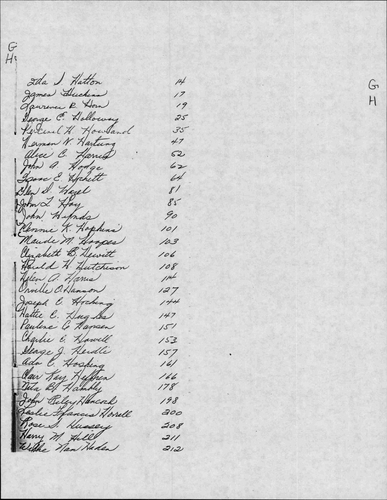 G
H
G
H
Ida I Hatton 14
James Huckins 17
Lawrence R. Horn 19
George E. Holloway 25
Percival H Howland 35
Herman W. Hartung 47
Alice E. Harris 52
John A. Hodge 62
Isaac E. Hackett 64
Glen D. 81
John L Hay 85
John Hynds 90
Nonnie K. Hopkins 101
Maude M. Hoopes 103
Elizabeth B. Hewitt 106
Harold H. Hutchison 108
Helen A. Harris 114
Orville O. Hannon 127
Joseph E. Hocking 144
Hattie C. Hughes 147
Pauline C. Hansen 151
Charlie E. Howell 153
George J. Hendle 157
Ada C. Hosking 161
Clair Ray Heffren 166
Hambly 178
John Riley Hancock 198
Leslie Francis Horrell 200
Rose S. Hussey 208
Harry M. Hill 211
Van Haden 212